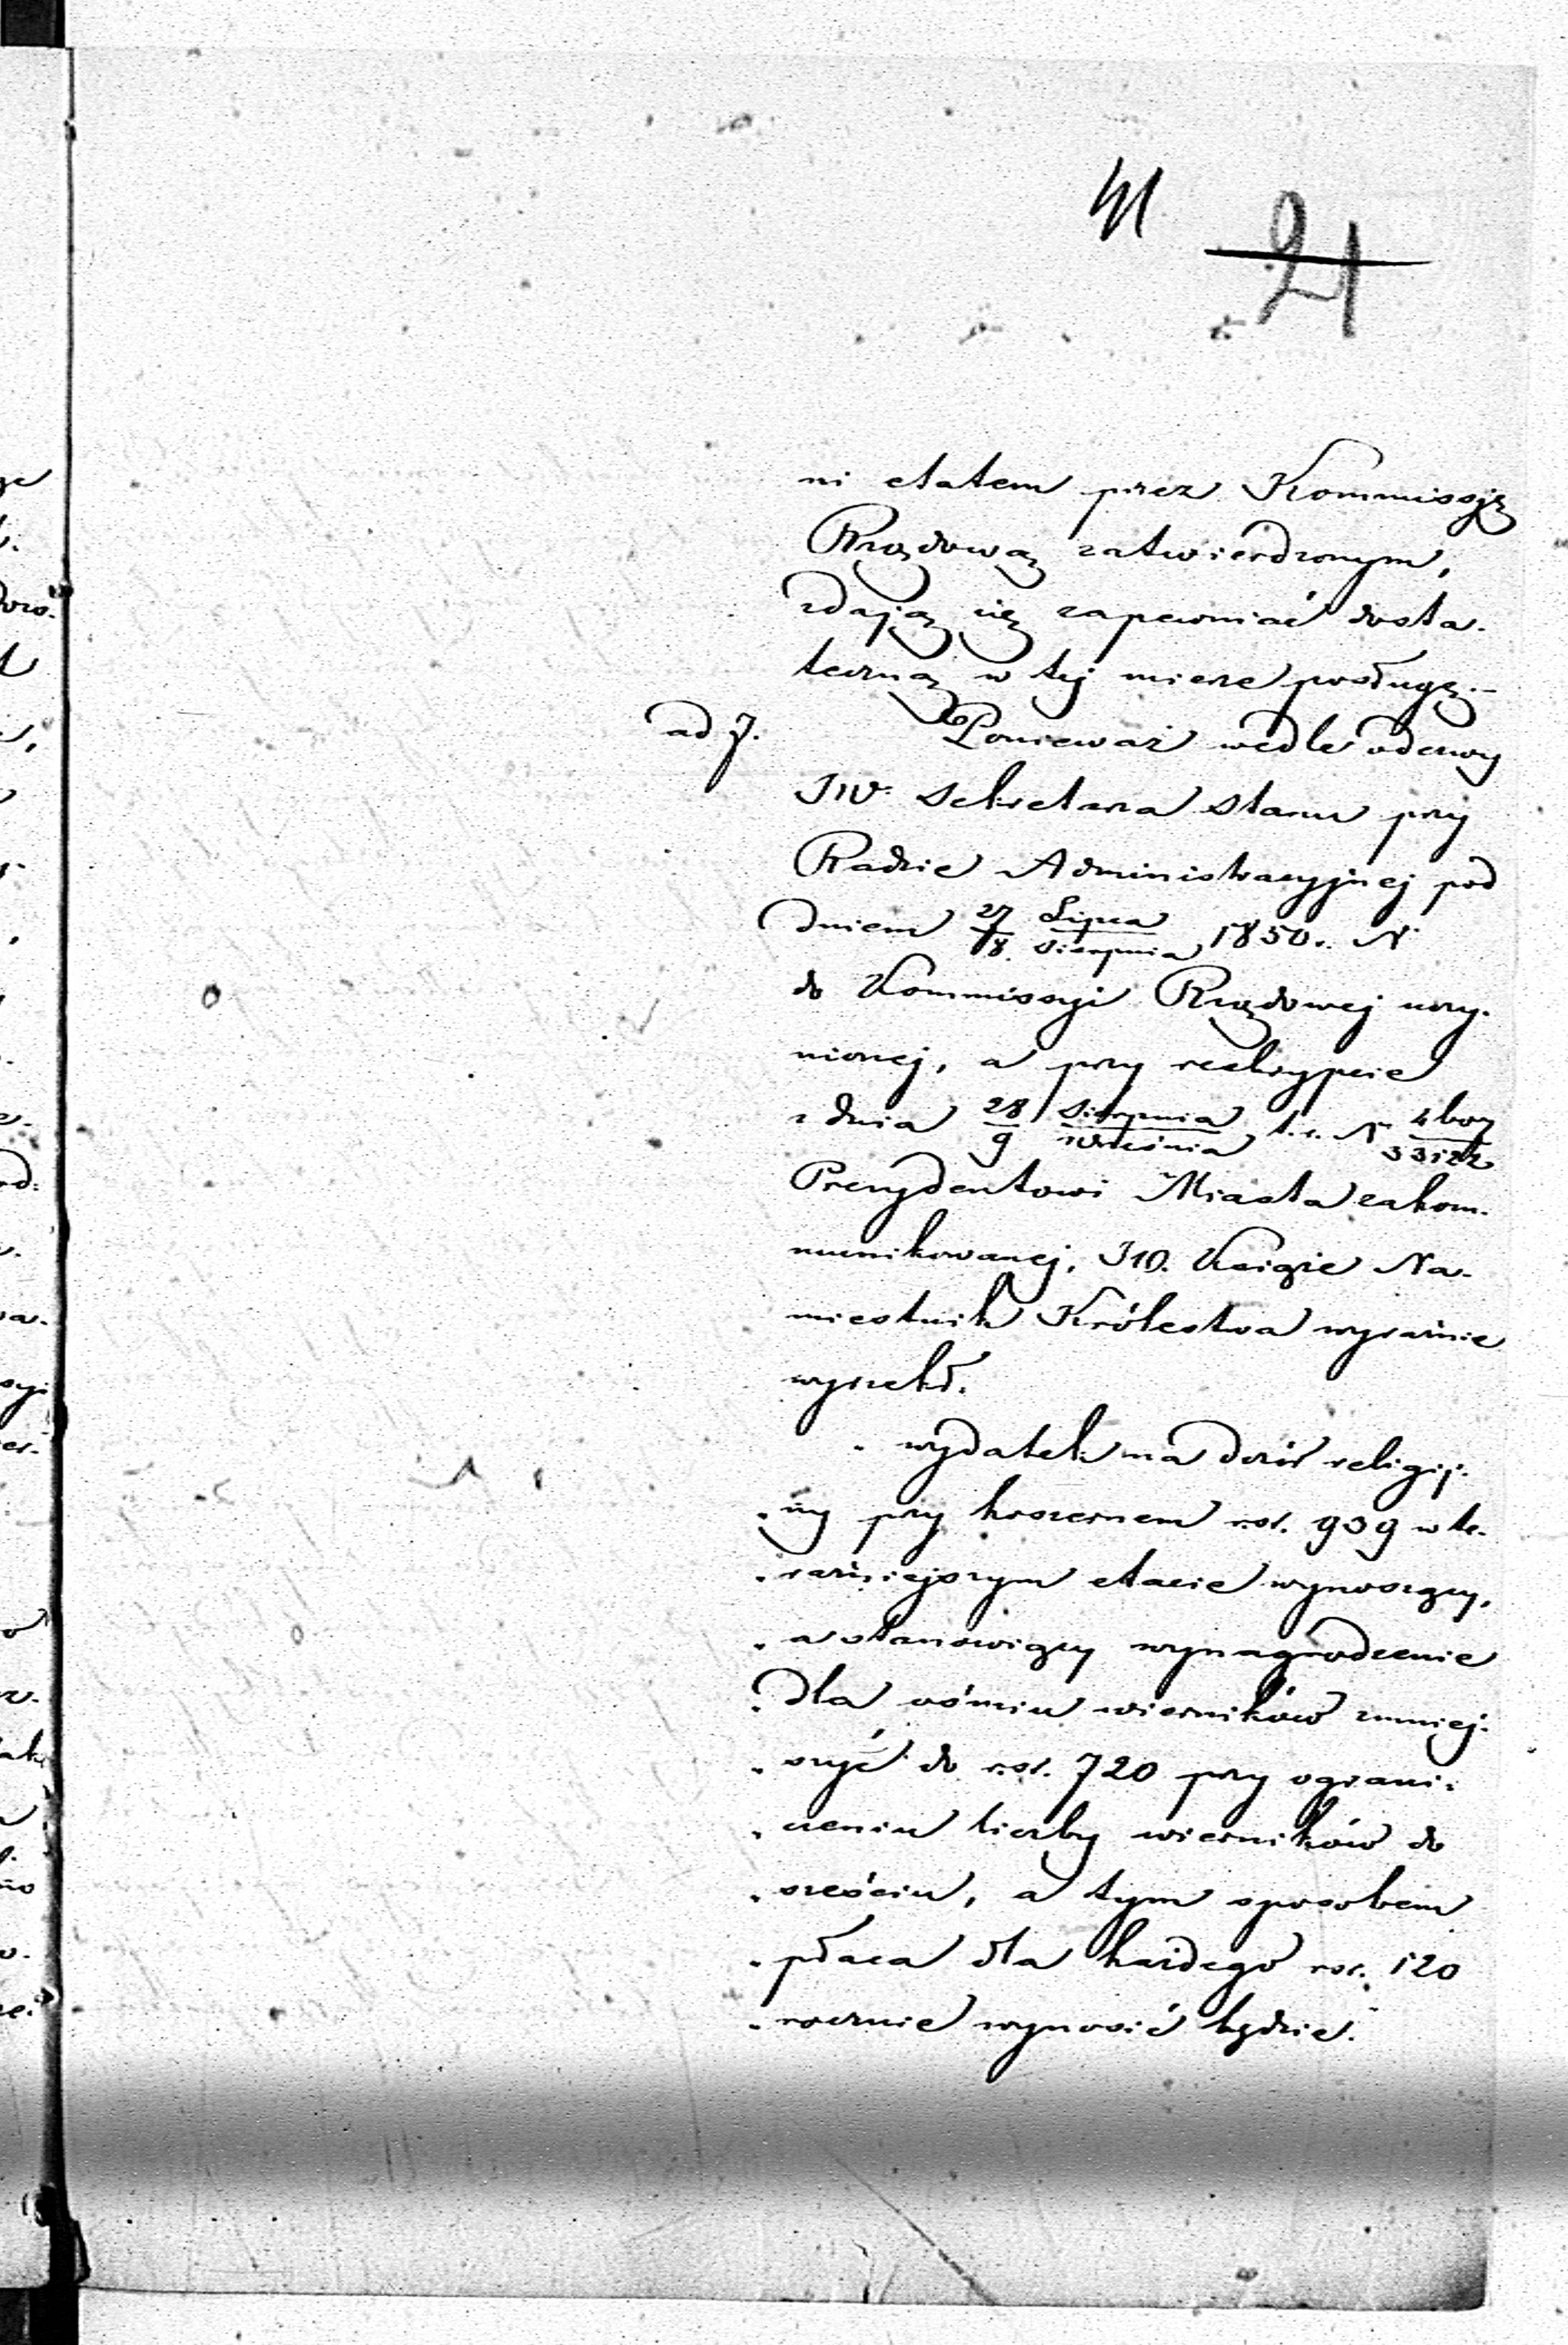 41
21
ni etatem przez Kommissję
Rządową zatwierdzonym,
zdają się zapewniać dosta-
teczną w tej mierze posługę.-
ad 7. Ponieważ wedle odezwy
JW. Sekretarza Stanu przy
Radzie Administracyjnej pod
dniem 27 Lipca / 8 Sierpnia 1850 r. N
do Kommissyi Rządowej uczy-
nionej, a przy reskrypcie
z dnia 28 Sierpnia / 9 Września t. r. N
Prezydentowi Miasta zakom-
munikowanej, JO. Xsiąże Na-
miestnik Królestwa wyraźnie
wyrzekł.
„ wydatek na dozór religij-
„ny przy koszernem rsr. 939 w te-
„raźniejszym etacie wynoszący,
„a stanowiący wynagrodzenie
„dla ośmiu wierników zmniej-
„szyć do rsr. 720 przy ograni-
„czeniu liczby wierników do
„sześciu, a tym sposobem
„płaca dla każdego rsr. 120
„rocznie wynosić będzie.